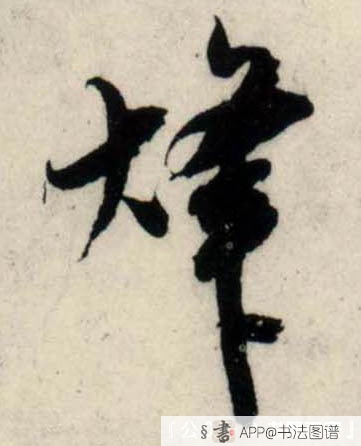 烽
§書 APP@书法图谱